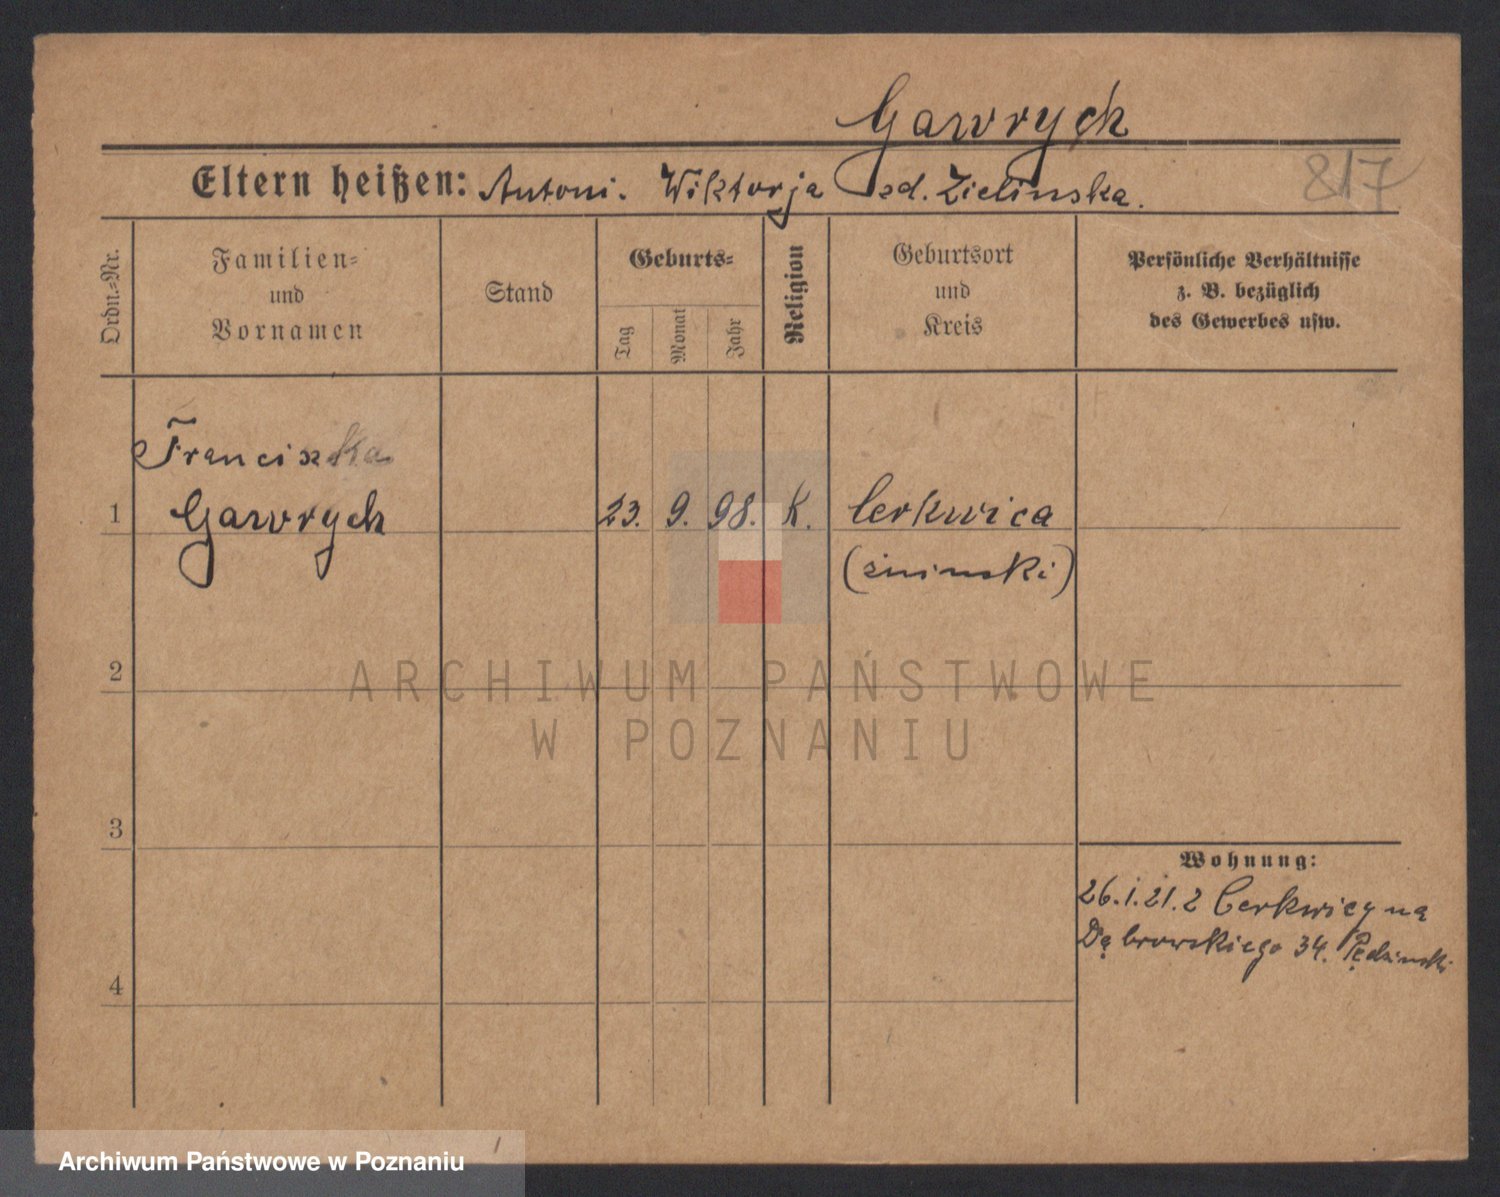 Gawrych
817
Eltern heißen: Antoni. Wiktorja zd. Zielinska.
Ordn.-Nr.
Familien-
und
Vornamen
Stand
Geburts-
Tag
Monat
Jahr
Religion
Geburtsort
und
Kreis
Persönliche Verhältnisse
z. B. bezüglich
des Gewerbes usw.
Franciszka
1 Gawrych 23. 9. 98. K. Cerkwica
(żninski)
2
ARCHIWUM PAŃSTWOWE
W POZNANIU
3
Wohnung:
26.1.21. z Cerkwicy na
Dąbrowskiego 34. Pędzinski
4
Archiwum Państwowe w Poznaniu